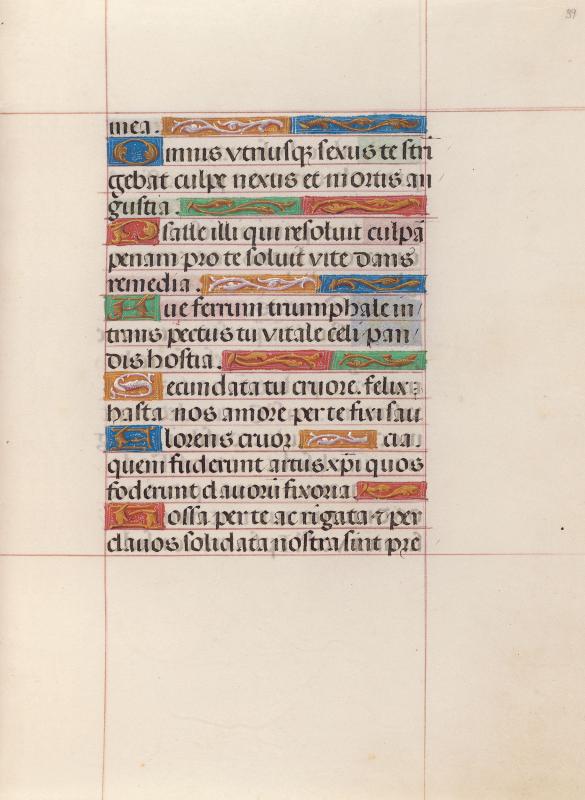 89
mea.
Omnis vtriusq; sexus te stri
gebat culpe nexus et mortis an
gustia.
Psalle illi qui resoluit culpã
penam pro te soluit vite dans
remedia.
Aue ferrum triumphale in
trans pectus tu vitale celi pan
dis hostia.
Fecundata tu cruore. felix
hasta nos amore per te fixi sau
Alorens cruor cia
quem fuderunt artus xpi quos
foderunt clauorũ fixoria.
Fossa per te ac rigata et per
clauos solidata nostra sint pre